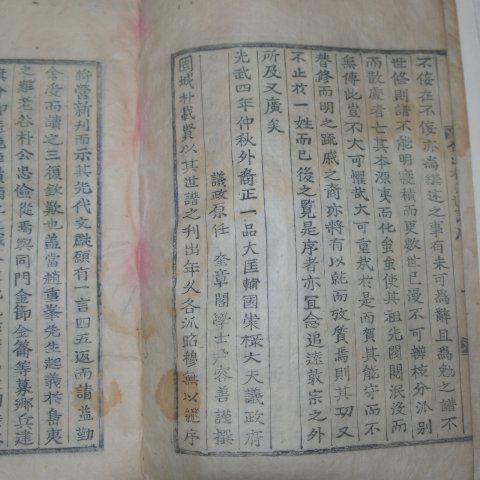 不侫在不侫亦爲譔述之事有未可爲辭且爲勉之譜不
世修則譜不能明寢積而更數世已漫不可辨枝分派別
而歡慶者亡其本源夷而化蚩蚩使其祖先閥閱泯沒而
無傳此豈不大可懼哉大可重哉於是而賀其能守而不
替修而明之疏戚之裔亦將有以就而攷質焉則其功又
不止於一姓而已後之覽是序者亦宜念追遠敦宗之外
所及又廣矣
光武四年仲秋外裔正一品大匡輔國崇祿大夫議政府
議政原任奎章閣學士尹容善謹撰
固城朴載賢以其世譜之刊出年久各派昭穆無以繼序
新營新刊而示其先代文獻願有一言四五返而請益勤
余受而讀之三復欽歎也蓋當趙重峯先生起義於島夷
之難老谷朴公忠儉從焉與同門金節金籥等募鄉兵建